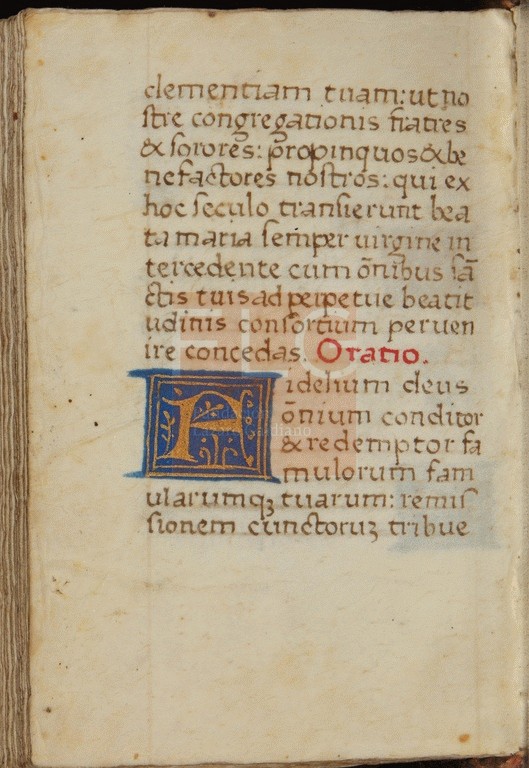 clementiam tuam: ut no
stre congregationis fratres
& sorores: propinquos & be
nefactores nostros: qui ex
hoc seculo transierunt bea
ta maria semper uirgine in
tercedente cum oñibus sã
ctis tuis ad perpetue beatit
udinis consortium peruen
ire concedas. Oratio.
Fidelium deus
oñium conditor
& redemptor fa
mulorum fam
ularumqꝫ tuarum: remis
sionem cunctoruꝫ tribue
FLC